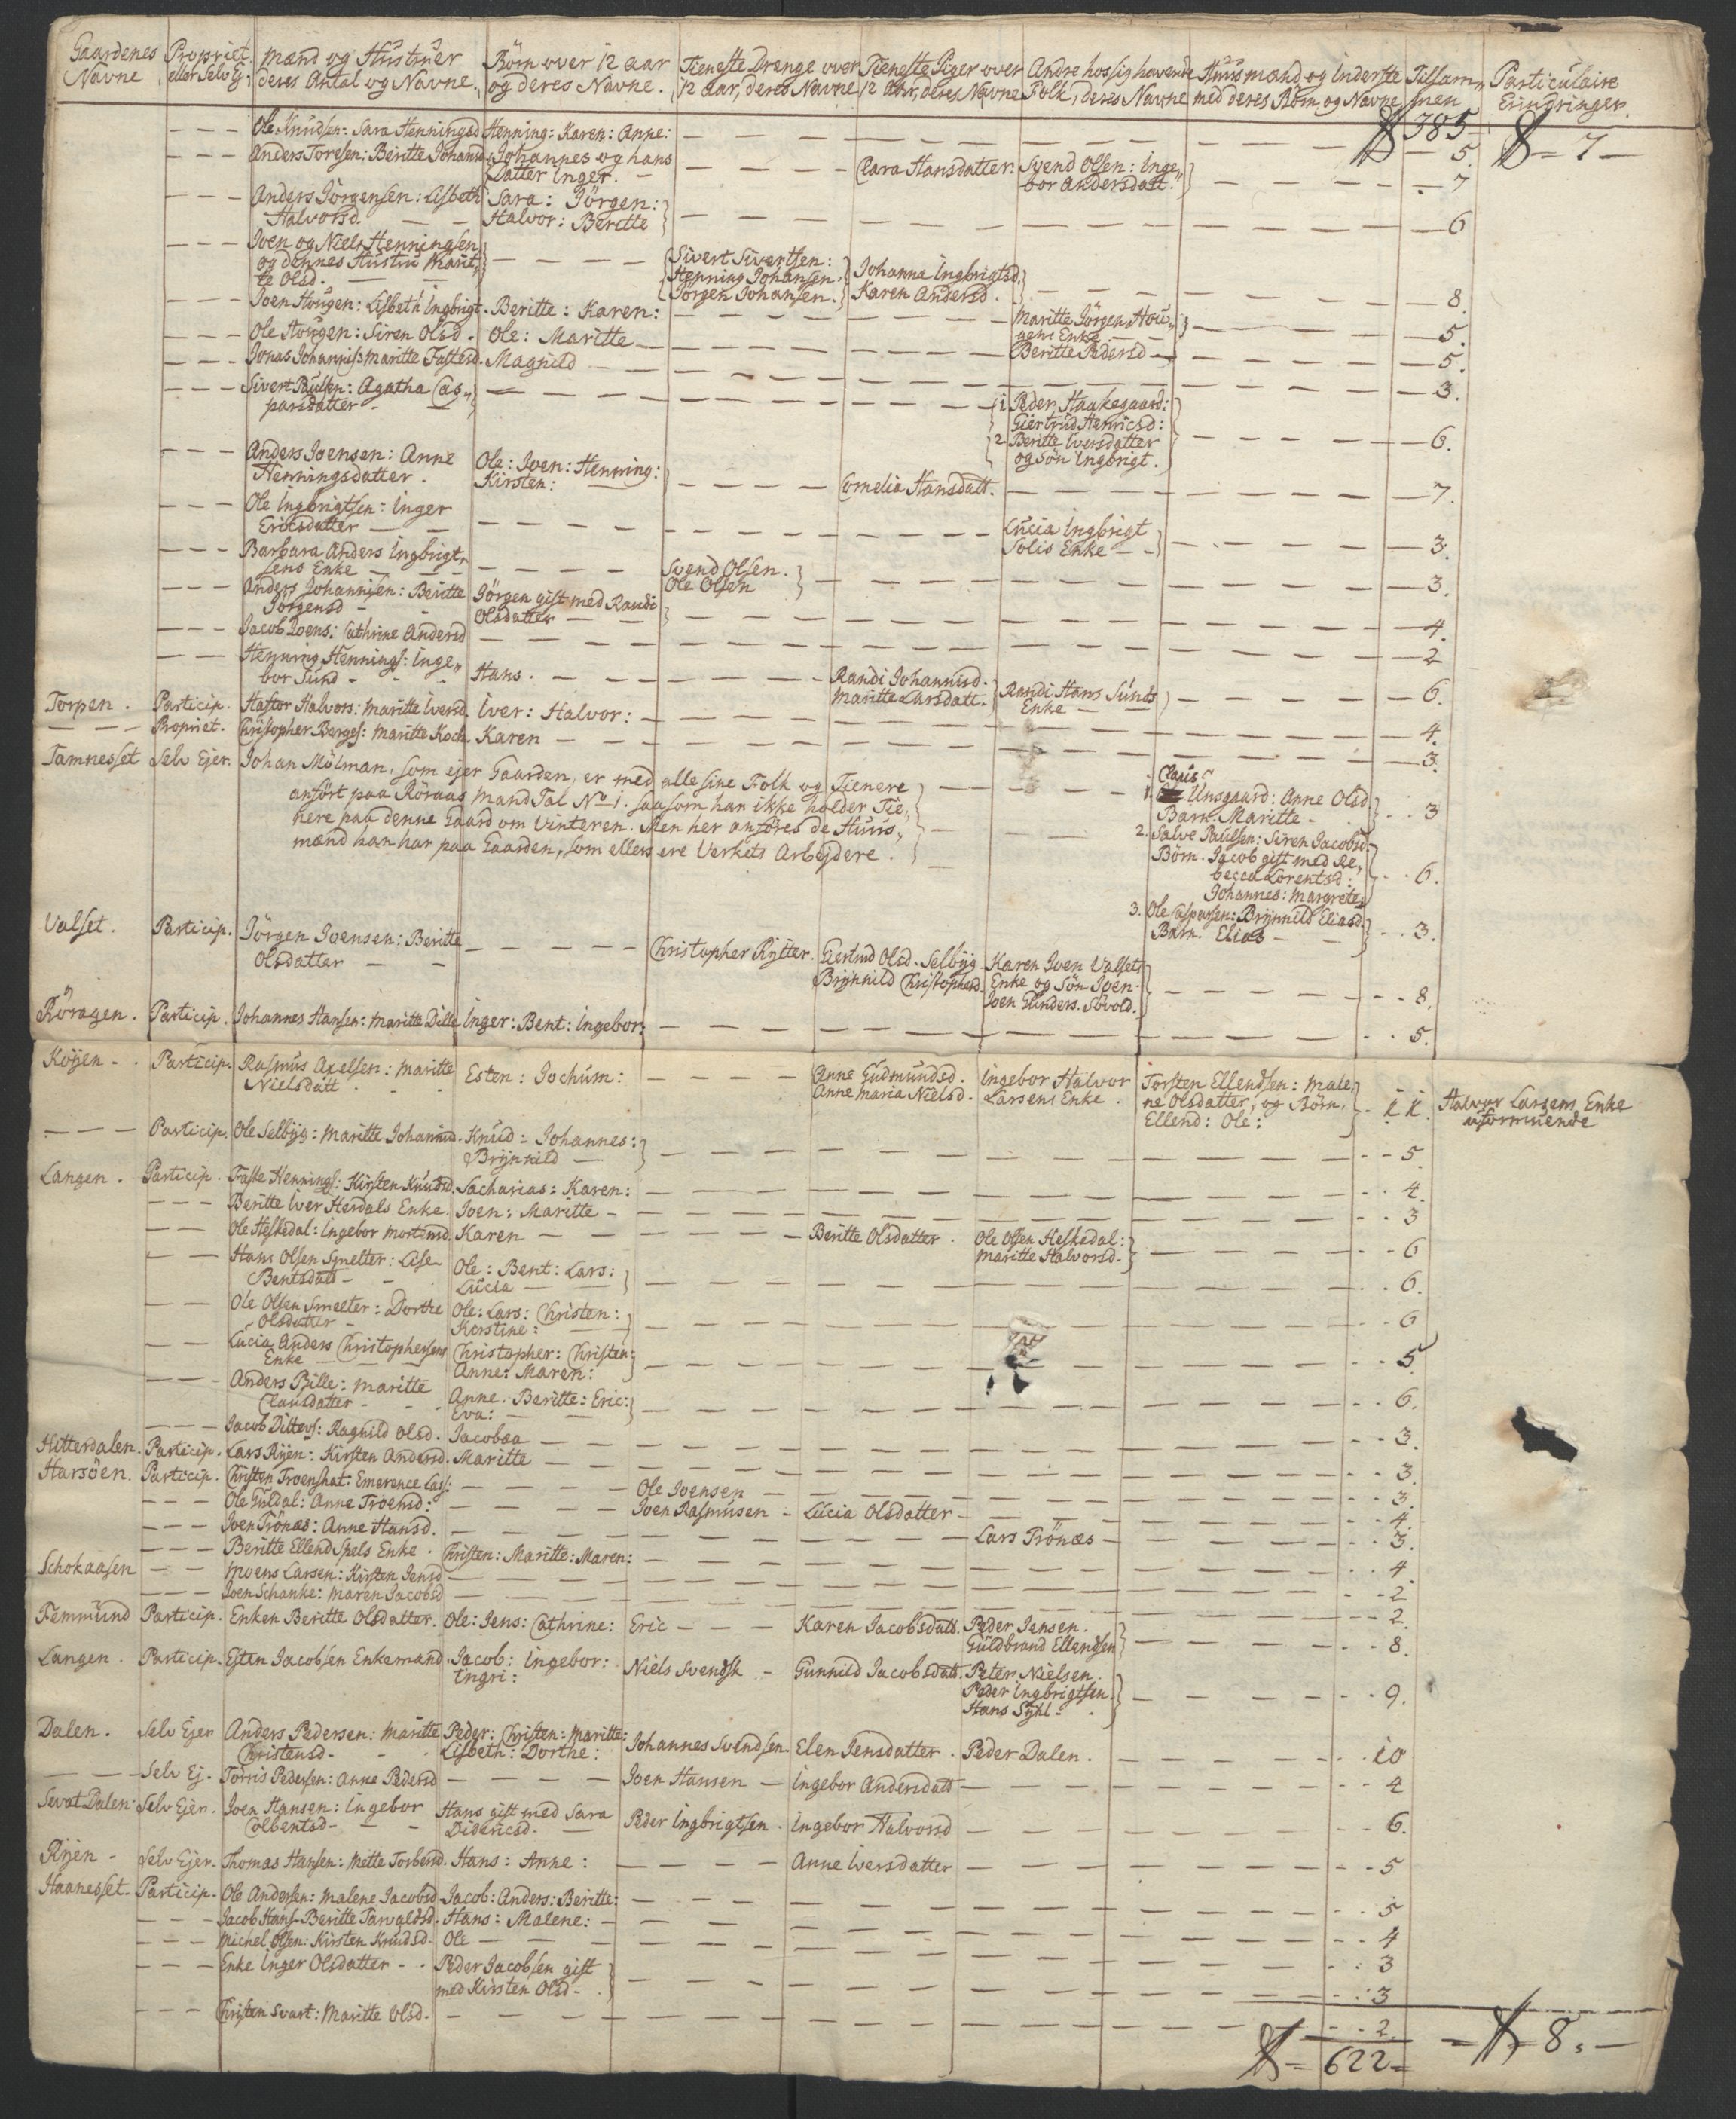 Gaardenes Navne | Propriet. eller Selv Ej: | Mænd og Hustruer deres Antal og Navne. | Börn over 12 aar og deres Navne. | Tieneste Drenge over 12 aar, deres Navne | Tieneste Piger over 12 Ahr, deres Navne | Andre hos sig havende Folk, deres Navne | Huusmænd og Inderste med deres Börn og Navne | Tilsammen | Particulaire Erindringer.
385 | 7
Ole Knudsen: Sara Henningsd | Henning: Karen: Anne: | 5.
Anders Toresen: Beritte Johansd | Johannes og hans Datter Inger. | Clara Hansdatter. | Svend Olsen: Ingebor Andersdatt. | 7
Anders Jörgensen: Lisbeth Halvorsd. | Sara: Jörgen: Halvor: Beritte | 6
Joen og Niels Henningsen og dennes Hustru Maritte Olsd. | Sivert Sivertsen: Henning Johansen. Jörgen Johansen. | Johanna Ingbrigtsd. Karen Andersd. | 8.
Joen Hougen: Lisbeth Ingbrigt. | Beritte: Karen: | Maritte Jörgen Hougens Enke | 5.
Ole Hougen: Siren Olsd. | Ole: Maritte | Beritte Pedersd | 5.
Jonas Johannis: Maritte Fastesd. | Magnild | 3.
Sivert Pulsen: Agatha Casparsdatter | 1 Peder Haakegaard: Giertrud Henricsd: 2 Beritte Iversdatter og Søn Ingbrigt. | 6.
Anders Joensen: Anne Henningsdatter. | Ole: Joen: Henning: Kirsten: | Cornelia Hansdatt. | 7.
Ole Ingbrigtsen: Inger Ericsdatter | Lucia Ingbrigt Solis Enke | 3.
Barbara Anders Ingbrigtsens Enke | Svend Olsen. Ole Olsen | 3.
Anders Johannisen: Beritte Jörgensd | Jörgen gift med Randi Olsdatter | 4.
Jacob Joens: Cathrine Andersd | 2
Henning Hennings: Ingebor Sund | Hans. | Randi Johannisd. Maritte Larsdatt. | Randi Hans Sunds Enke | 6.
Torpen. | Particip. | Hastor Halvors: Maritte Iversd. | Iver: Halvor: | 4.
Propriet. | Christopher Berges: Maritte Koch | Karen | 3.
Tamnesset | Selv Ejer. | Johan Mölman, som ejer Gaarden, er med alle sine Folk og Tienere
anfört paa Röraas Mand Tal No 1. saasom han ikke holder Tie,,
nere paa denne Gaard om Vinteren. Men her anföres de Huus,,
mænd han har paa Gaarden, som ellers ere Verkets Arbejdere.
1. Claus Unsgaard: Anne Olsd Barn. Maritte | 3
2. Salve Paulsen: Siren Jacobsd. Börn. Jacob gift med Rebecca Lorentsd: Johannes: Margrete | 6.
3. Ole Caspersen: Brynnild Eliasd. Barn. Elias | 3.
Valset. | Particip. | Jörgen Joensen: Beritte Olsdatter | Christopher Rytter. | Giertrud Olsd. Selbyg. Brynnild Christophersd. | Karen Joen Valsets Enke og Søn Joen. Joen Gunders. Sovold. | 8.
Röragen. | Particip. | Johannes Hansen: Maritte Dille | Inger: Bent: Ingebor: | 5.
Kojen | Particip. | Rasmus Axelsen: Maritte Nielsdatt | Esten: Jochum: | Anne Gudmundsd. Anne Maria Nielsd. | Ingebor Halvor Larsens Enke. | Torsten Ellendsen: Malene Olsdatter, og Börn, Ellend: Ole: | 11. | Halvor Larsens Enke uformuende
Particip. | Ole Selbyg: Maritte Johannisd. | Knud: Johannes: Brynnild | 5.
Langen. | Particip. | Faste Hennings: Kirsten Knudsd. | Sacharias: Karen: | 4.
Beritte Iver Herdals Enke. | Joen: Maritte | 3
Ole Heskedal: Ingebor Mortensd. | Karen | Beritte Olsdatter. | Ole Olsen Heskedal: Maritte Halvorsd. | 6
Hans Olsen Smelter: Lise Bentsdatt | Ole: Bent: Lars: Lucia | 6.
Ole Olsen Smelter: Dorthe Olsdatter | Ole: Lars: Christen: Kirstine: | 6
Lucia Anders Christophersens Enke | Christopher: Christen: Anne: Maren: | 5
Anders Bille: Maritte Clausdatter | Anne: Beritte: Eric: Eva: | 6.
Jacob Ditlevs: Ragnild Olsd. | Jacobæa | 3.
Hitterdalen. | Particip. | Lars Ryen: Kirsten Andersd. | Maritte | 3.
Harsöen. | Particip. | Christen Troenshat: Emerence Lass: | Ole Joensen | 3.
Ole Guldal: Anne Troensd: | Joen Rasmusen | Lucia Olsdatter | 4.
Joen Trönæs: Anne Hansd. | Lars Trönæs | 3.
Beritte Ellend Spels Enke. | Christen: Maritte: Maren: | 4.
Schokaasen | Moens Larsen: Kirsten Jensd | 2
Joen Schanke: Maren Jacobsd | 2.
Femmund | Particip. | Enken Beritte Olsdatter. | Ole: Jens: Cathrine: | Eric | Karen Jacobsdatt. | Peder Jensen. Guldbrand Ellendsen | 8.
Langen. | Particip. | Esten Jacobsen Enkemand | Jacob: Ingebor: Ingri: | Niels Svendsk | Gunnild Jacobsdatt. | Peter Nielsen. Peder Ingbrigtsen. Hans Syhl | 9.
Dalen. | Selv Ejer | Anders Pedersen: Maritte Christensd | Peder: Christen: Maritte: Lisbeth: Dorthe: | Johannes Svendsen | Elen Jensdatter. | Peder Dalen. | 10
Selv Ej. | Torris Pedersen: Anne Pedersd | Joen Hansen | Ingebor Andersdatt | 4
Sevat Dalen | Selv Ejer. | Joen Hansen: Ingebor Colbentsd | Hans gift med Sara Didericsd. | Peder Ingbrigtsen. | Ingebor Halvorsd | 6.
Ryen | Selv Ejer. | Thomas Hansen: Mette Torbersd. | Hans: Anne: | Anne Iversdatter | 5
Haanesset. | Particip. | Ole Andersen: Malene Jacobsd | Jacob: Anders: Beritte: | 5
Jacob Hans. Beritte Tarvaldsd. | Hans: Malene: | 4
Michel Olsen: Kirsten Knudsd. | Ole | 3
Enke Inger Olsdatter | Peder Jacobsen gift med Kirsten Olsd | 3
Christen Svart: Maritte Olsd. | 2.
622 | 8.